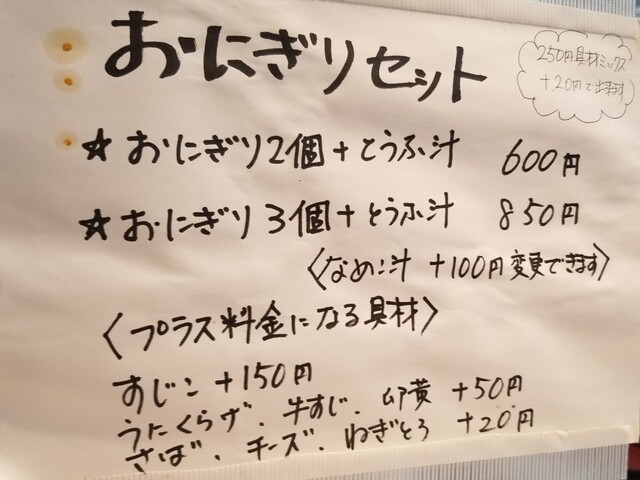 おにぎりセット
250円具材ミックス
+20円で出来ます
☆ おにぎり2個+とうふ汁 600円
☆ おにぎり3個+とうふ汁 850円
〈なめこ汁 +100円変更できます〉
〈プラス料金になる具材〉
すじこ +150円
うにくらげ、牛すじ、卵黄 +50円
さば、チーズ、ねぎとろ +20円